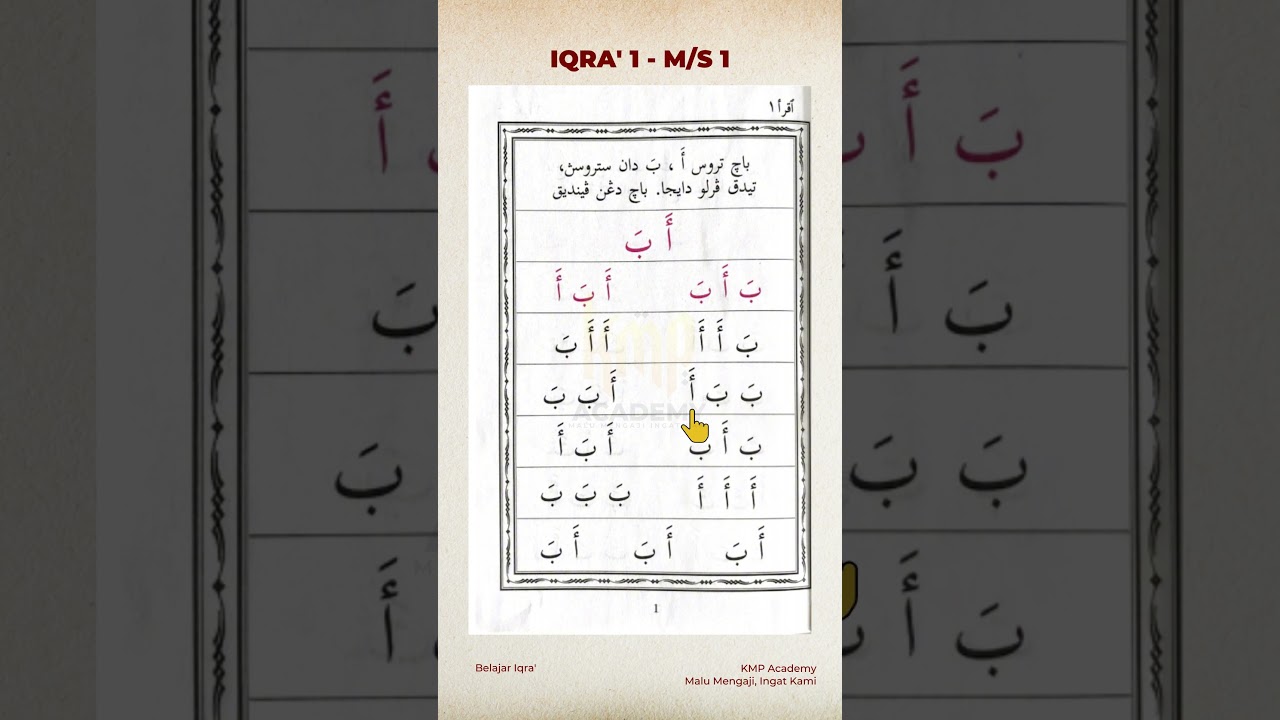 IQRA' 1 - M/S 1
اقرأ ١
باچ تروس أَ ، بَ دان ستروسڽ،
تيدق ڤرلو دايجا. باچ دڠن ڤينديق
أَ بَ
بَ أَ بَ أَ بَ أَ
بَ أَ أَ أَ أَ بَ
بَ بَ أَ أَ بَ بَ
بَ أَ بَ أَ بَ أَ
أَ أَ أَ بَ بَ بَ
أَ بَ أَ بَ أَ بَ
kmp
ACADEMY
MALU MENGAJI INGAT
1
Belajar Iqra'
KMP Academy
Malu Mengaji, Ingat Kami